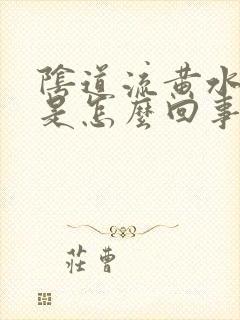 陰道流黄水
是怎麽回事
莊曹